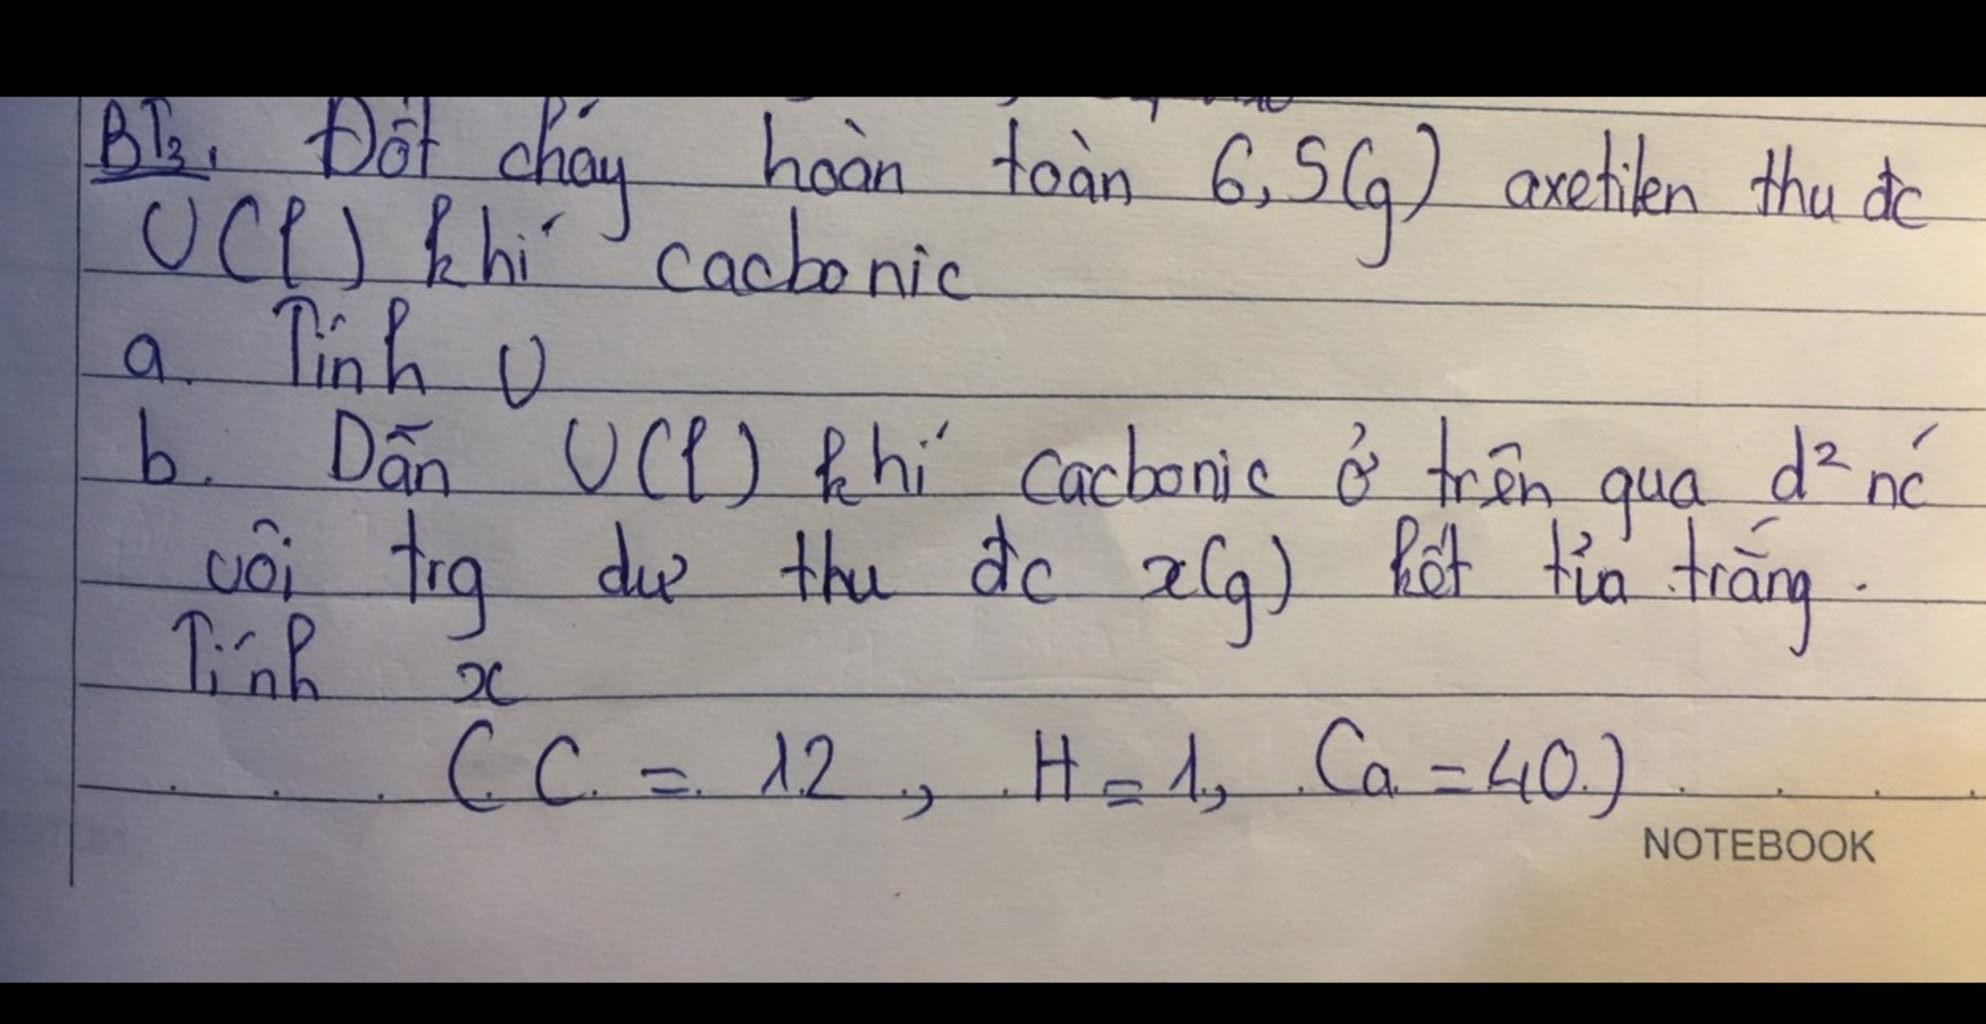 BT3. Đốt cháy hoàn toàn 6,5(g) axetilen thu đc
V(l) khí cacbonic
a. Tính V
b. Dẫn V(l) khí cacbonic ở trên qua d² nć
vôi trg dư thu đc x(g) kết tủa trắng.
Tính x
(C = 12, H = 1, Ca = 40)
NOTEBOOK